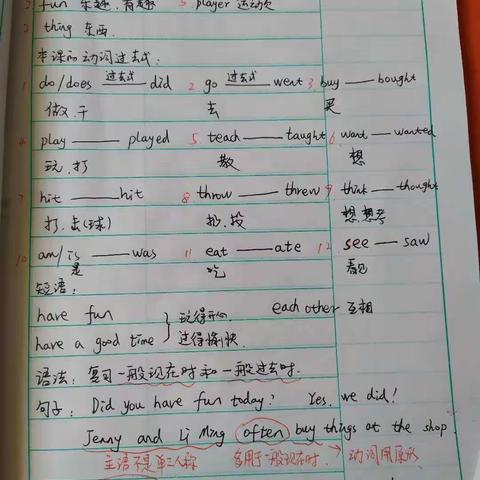 2. fun 乐趣,有趣 5. player 运动员
3 thing 东西
本课的动词过去式:
1 do/does 过去式 did 2. go 过去式 went 3. buy —— bought
做,干 去 买
4 play —— played 5. teach —— taught 6. want —— wanted
玩,打 教 想
7 hit —— hit 8. throw —— threw 9. think —— thought
打,击(球) 扔,投 想,想考
10 am/is —— was 11 eat —— ate 12. see —— saw
是 吃 看见
短语:
have fun 玩得开心 each other 互相
have a good time 过得愉快.
语法: 复习一般现在时和一般过去时.
句子: Did you have fun today? Yes, we did!
Jenny and Li Ming often buy things at the shop.
主语不是单三人称 多用于一般现在时. 动词用原形